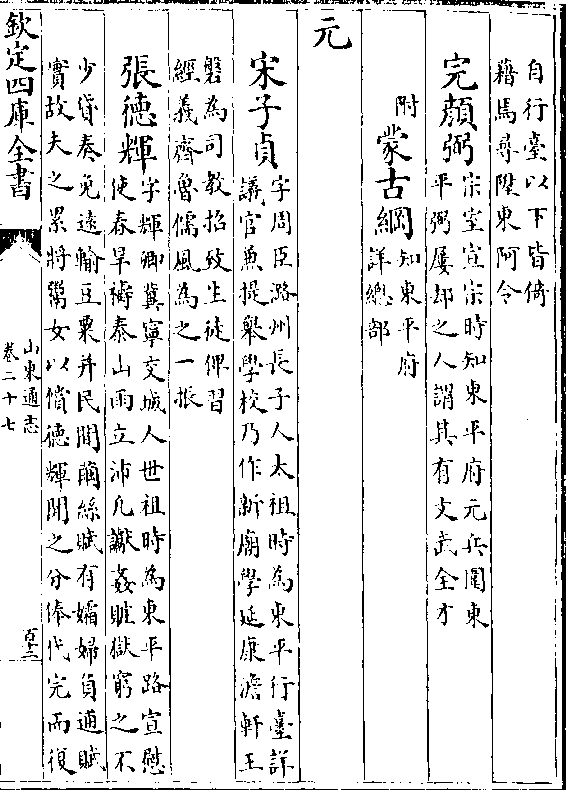 自行臺以下皆倚
藉焉尋陞東阿令
完顏弼
宗室宣宗時知東平府元兵圍東
平弼屢却之人謂其有文武全才
附
蒙古綱
知東平府
詳總部
元
宋子貞
字周臣潞州長子人太祖時為東平行臺詳
議官兼提舉學校乃作新廟學延康澹軒王
磐為司教招致生徒俾習
經義齊魯儒風為之一振
張德輝
字輝卿冀寧交城人世祖時為東平路宣慰
使春旱禱泰山雨立沛凡讞姦贓獄窮之不
少貸奏免遠輸豆粟并民間繭絲賦有孀婦負逋賦
實故夫之累將鬻女以償德輝聞之分俸代完而復
欽定四庫全書
山東通志
卷二十七